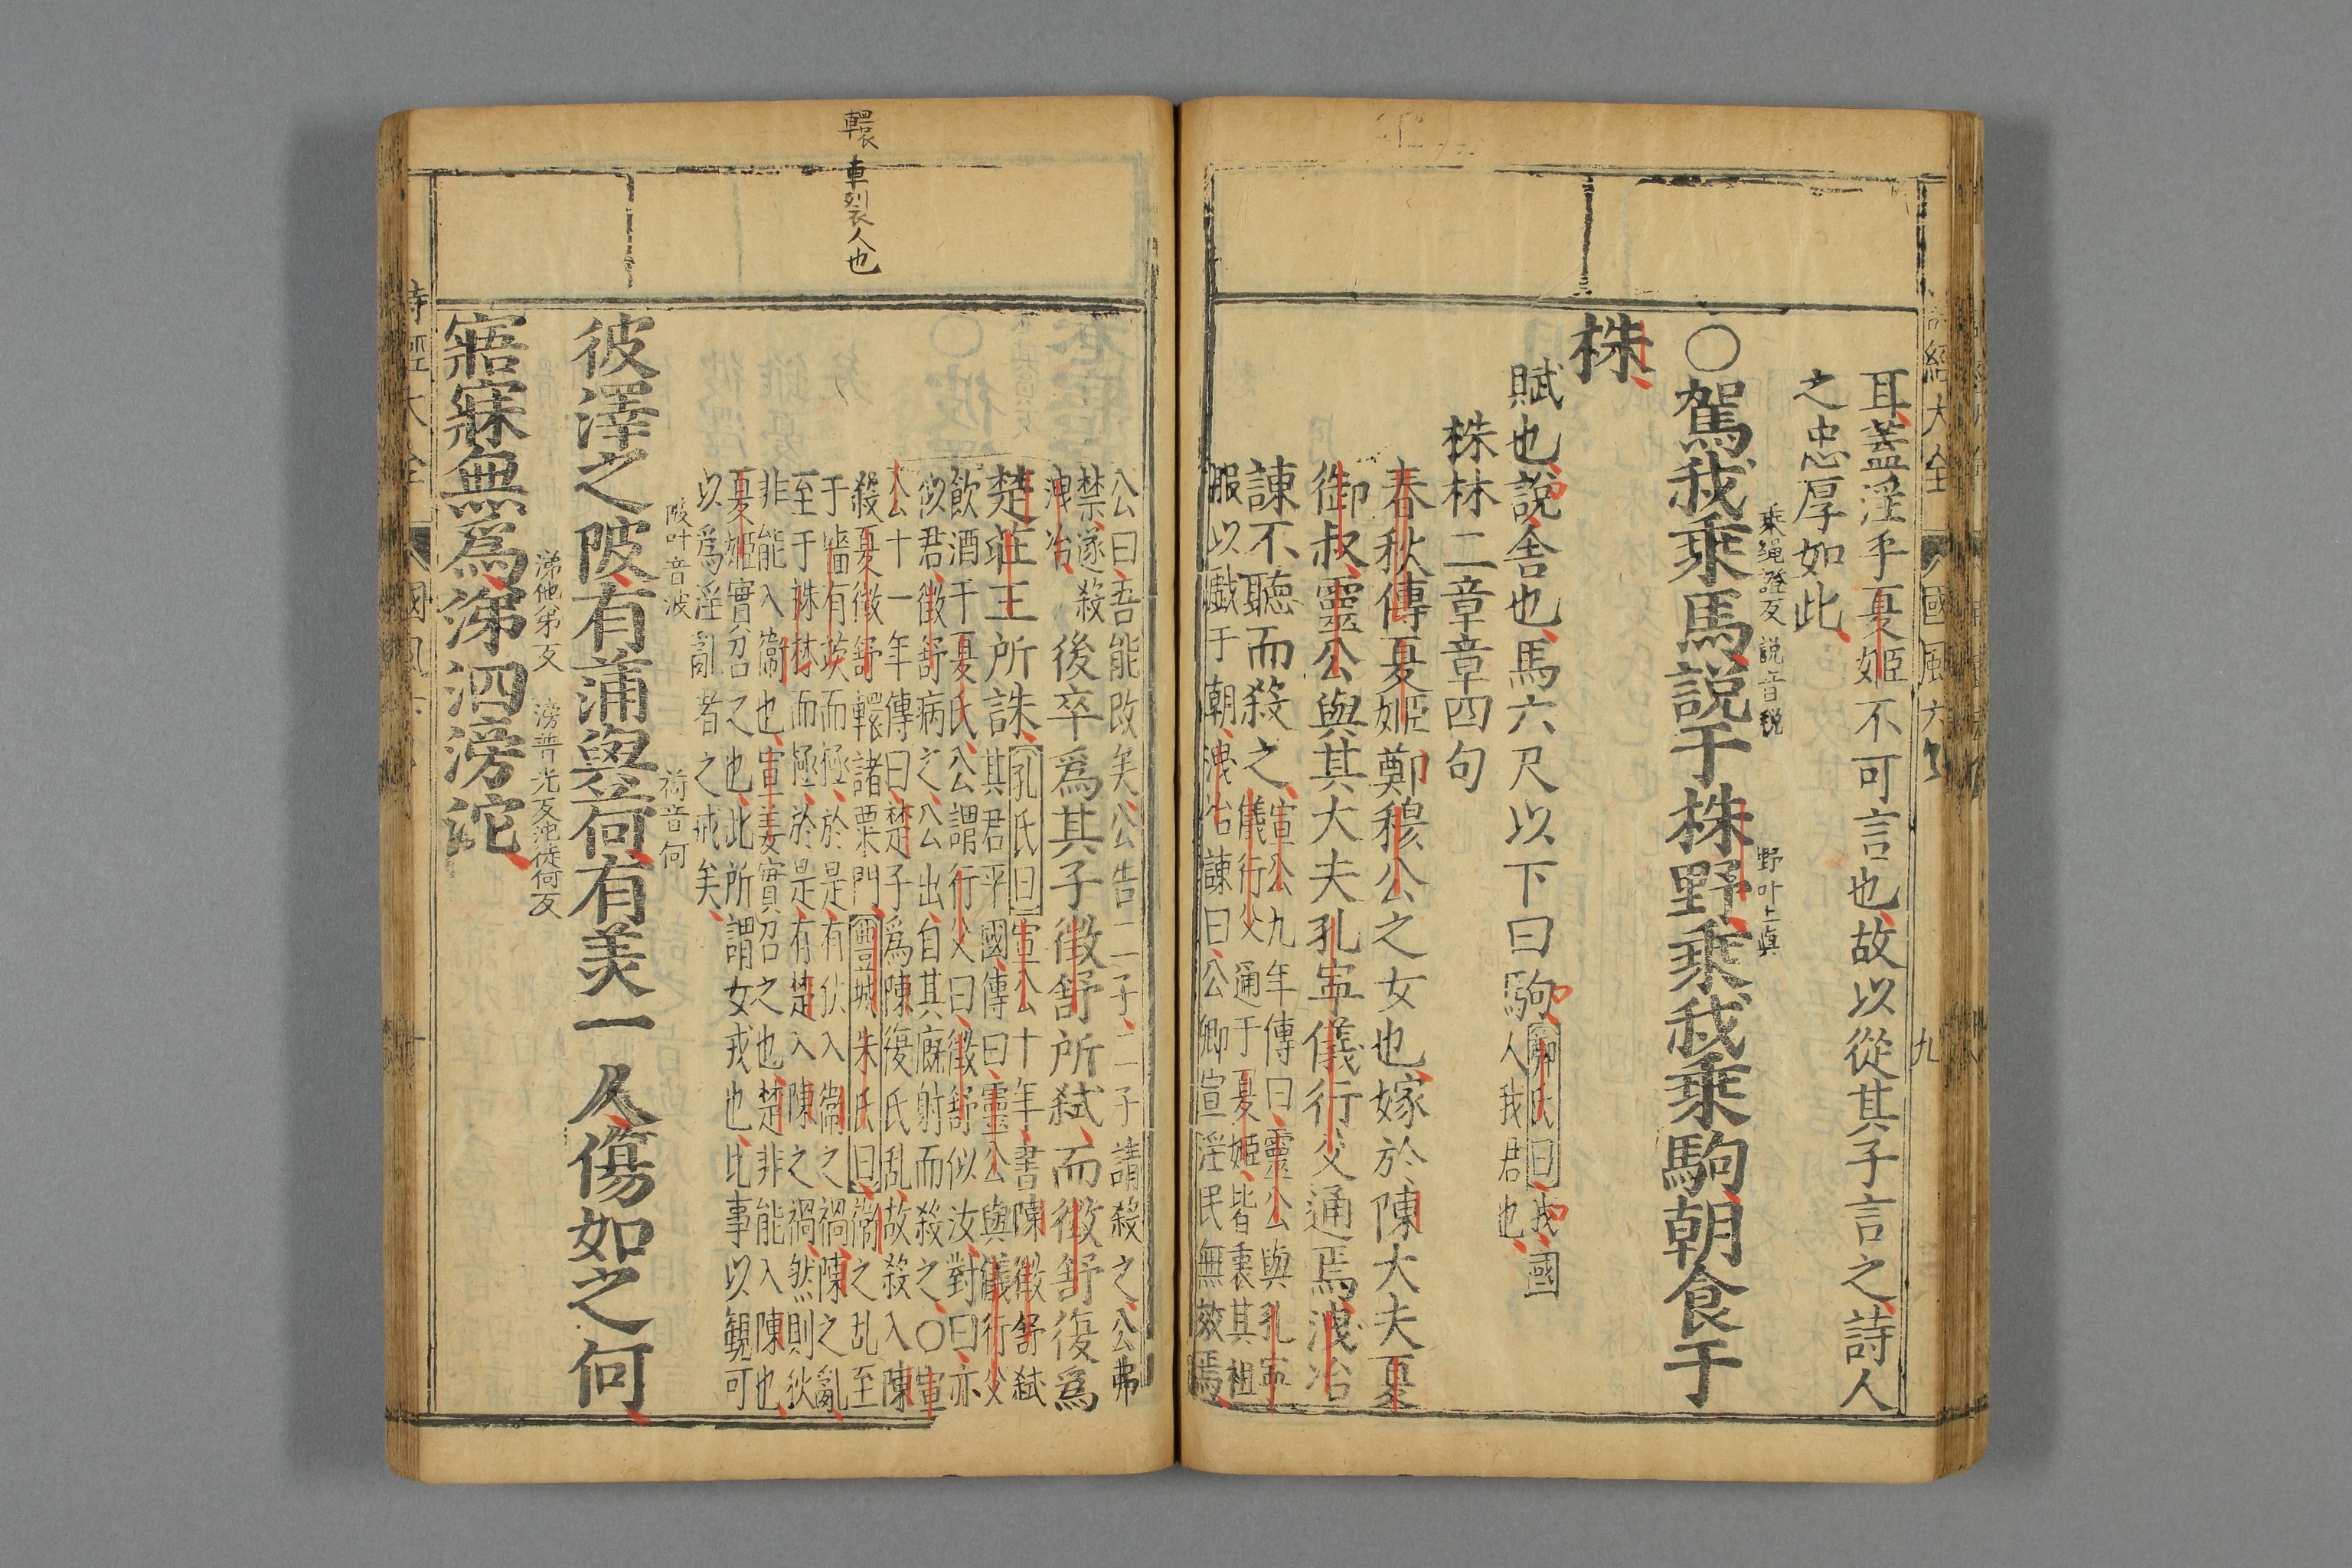 詩經大全 國風六 九
耳蓋淫乎夏姬不可言也故以從其子言之詩人
之忠厚如此
乘繩證反 說音稅 野叶上與
〇駕我乘馬說于株野乘我乘駒朝食于
株
賦也說舍也馬六尺以下曰駒鄭氏曰我國
人我君也
株林二章章四句
春秋傳夏姬鄭穆公之女也嫁於陳大夫夏
御叔靈公與其大夫孔寧儀行父通焉洩冶
諫不聽而殺之宣公九年傳曰靈公與孔寧
儀行父通于夏姬皆衷其袓
服以戲于朝洩冶諫曰公卿宣淫民無效焉
公曰吾能改矣公告二子二子請殺之公弗
禁遂殺
洩冶
後卒爲其子徵舒所弑而徵舒復爲
楚莊王所誅孔氏曰宣公十年書陳徵舒弑
其君平國傳曰靈公與儀行父
飲酒于夏氏公謂行父曰徵舒似汝對曰亦
似君徵舒病之公出自其廐射而殺之〇宣
公十一年傳曰楚子爲陳復氏乱故殺入陳
殺夏徵舒轘諸栗門豐城朱氏曰衞之乱至
于牆有茨而極於是有伏入衞之禍陳之亂
至于株林而極於是有楚入陳之禍然則狄
非能入衞也宣姜實召之也楚非能入陳也
夏姬實召之也此所謂女戎也比事以觀可
以爲淫亂者之戒矣
轘 車裂人也
陂叶音波 荷音何
彼澤之陂有蒲與荷有美一人傷如之何
涕他弟反 滂普光反沱徒何反
寤寐無爲涕泗滂沱
詩經大全 國風